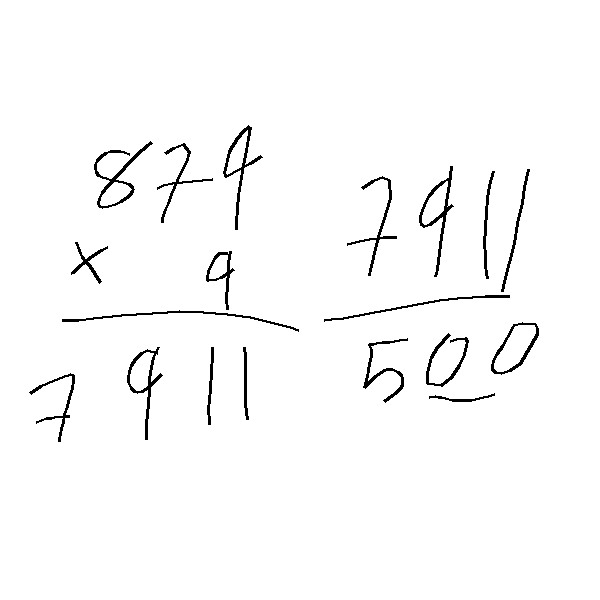 879
× 9
7911
7911
500